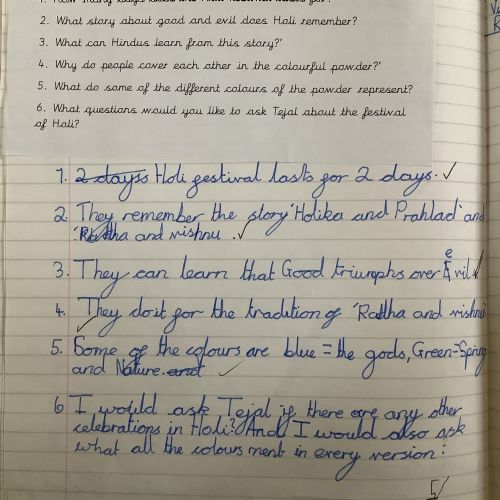 2. What story about good and evil does Holi remember?
3. What can Hindus learn from this story?'
4. Why do people cover each other in the colourful powder?'
5. What do some of the different colours of the powder represent?
6. What questions would you like to ask Tejal about the festival
of Holi?
1. 2 days Holi festival lasts for 2 days.
2. They remember the story 'Holika and Prahlad' and
'Radha and vishnu.
3. They can learn that Good triumphs over evil.
4. They do it for the tradition of 'Radha and vishnu
5. Some of the colours are blue = the gods, Green=Spring
and Nature. and
6 I would ask Tejal if there are any other
celebrations in Holi? And I would also ask
what all the colours ment in every version.
5/